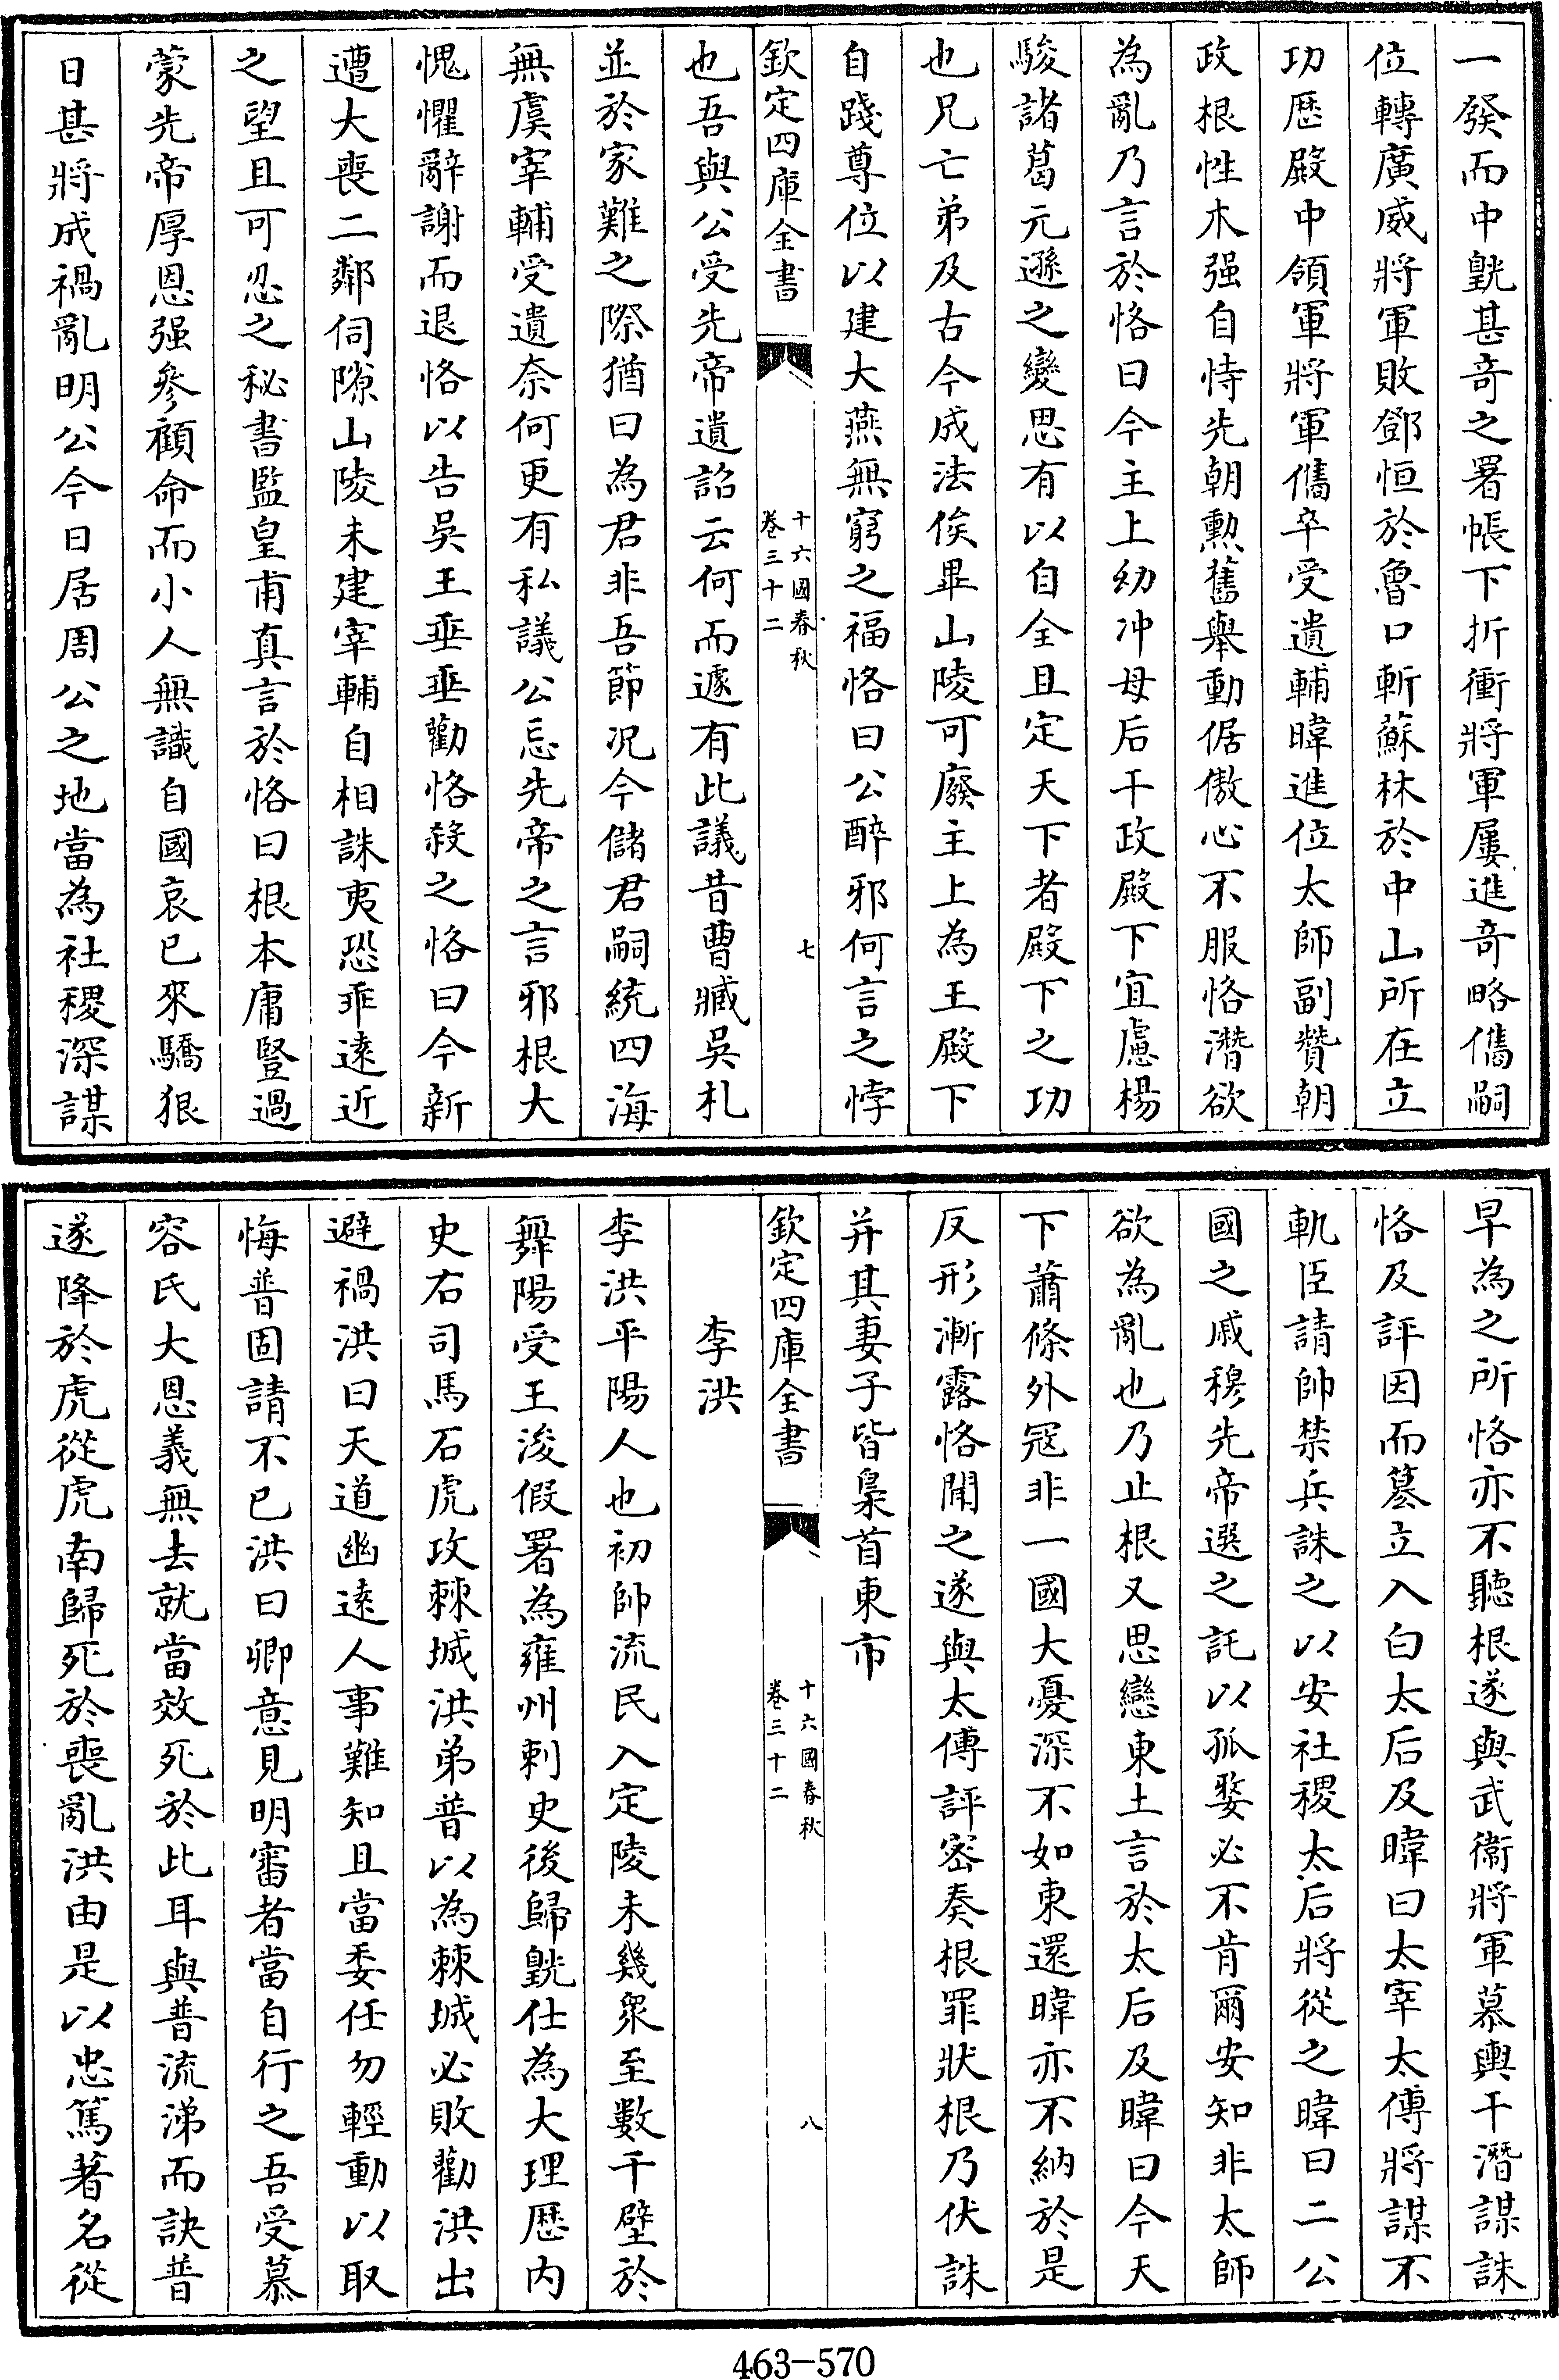 一發而中皝甚奇之署帳下折衝將軍屢進奇略儁嗣
位轉廣威將軍敗鄧恒於魯口斬蘇林於中山所在立
功歴殿中領軍將軍儁卒受遺輔暐進位太師副贊朝
政根性木强自恃先朝勲舊舉動倨傲心不服恪潛欲
為亂乃言於恪曰今主上幼冲母后干政殿下宜慮楊
駿諸葛元遜之變思有以自全且定天下者殿下之功
也兄亡弟及古今成法俟畢山陵可廢主上為王殿下
自踐尊位以建大燕無窮之福恪曰公醉邪何言之悖
欽定四庫全書
十六國春秋
卷三十二
七
也吾與公受先帝遺詔云何而遽有此議昔曹臧吳札
並於家難之際猶曰為君非吾節况今儲君嗣統四海
無虞宰輔受遺奈何更有私議公忘先帝之言邪根大
愧懼辭謝而退恪以告吳王垂垂勸恪殺之恪曰今新
遭大喪二鄰伺隙山陵未建宰輔自相誅夷恐乖逺近
之望且可忍之秘書監皇甫真言於恪曰根本庸豎過
蒙先帝厚恩强參顧命而小人無識自國哀已來驕狠
日甚將成禍亂明公今日居周公之地當為社稷深謀
早為之所恪亦不聽根遂與武衞將軍慕輿干潛謀誅
恪及評因而簒立入白太后及暐曰太宰太傅將謀不
軌臣請帥禁兵誅之以安社稷太后將從之暐曰二公
國之戚穆先帝選之託以孤嫠必不肯爾安知非太師
欲為亂也乃止根又思戀東土言於太后及暐曰今天
下蕭條外冦非一國大憂深不如東還暐亦不納於是
反形漸露恪聞之遂與太傅評密奏根罪狀根乃伏誅
并其妻子皆梟首東市
欽定四庫全書
十六國春秋
卷三十二
八
李洪
李洪平陽人也初帥流民入定陵未幾衆至數千壁於
舞陽受王浚假署為雍州刺史後歸皝仕為大理歴内
史右司馬石虎攻棘城洪弟普以為棘城必敗勸洪出
避禍洪曰天道幽逺人事難知且當委任勿輕動以取
悔普固請不已洪曰卿意見明審者當自行之吾受慕
容氏大恩義無去就當效死於此耳與普流涕而訣普
遂降於虎從虎南歸死於喪亂洪由是以忠篤著名從
463-570